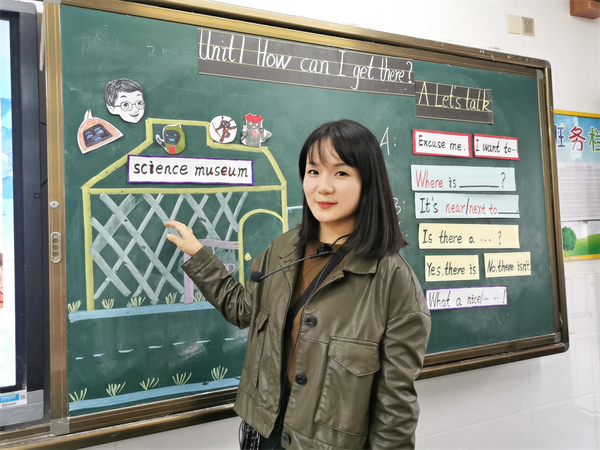 Unit1 How can I get there?
A Let's talk
science museum
A:
Excuse me.
I want to...
Where is ______?
It's near/next to____
Is there a ... ?
Yes,there is.
No,there isn't.
What a nice/... ...!
班务栏